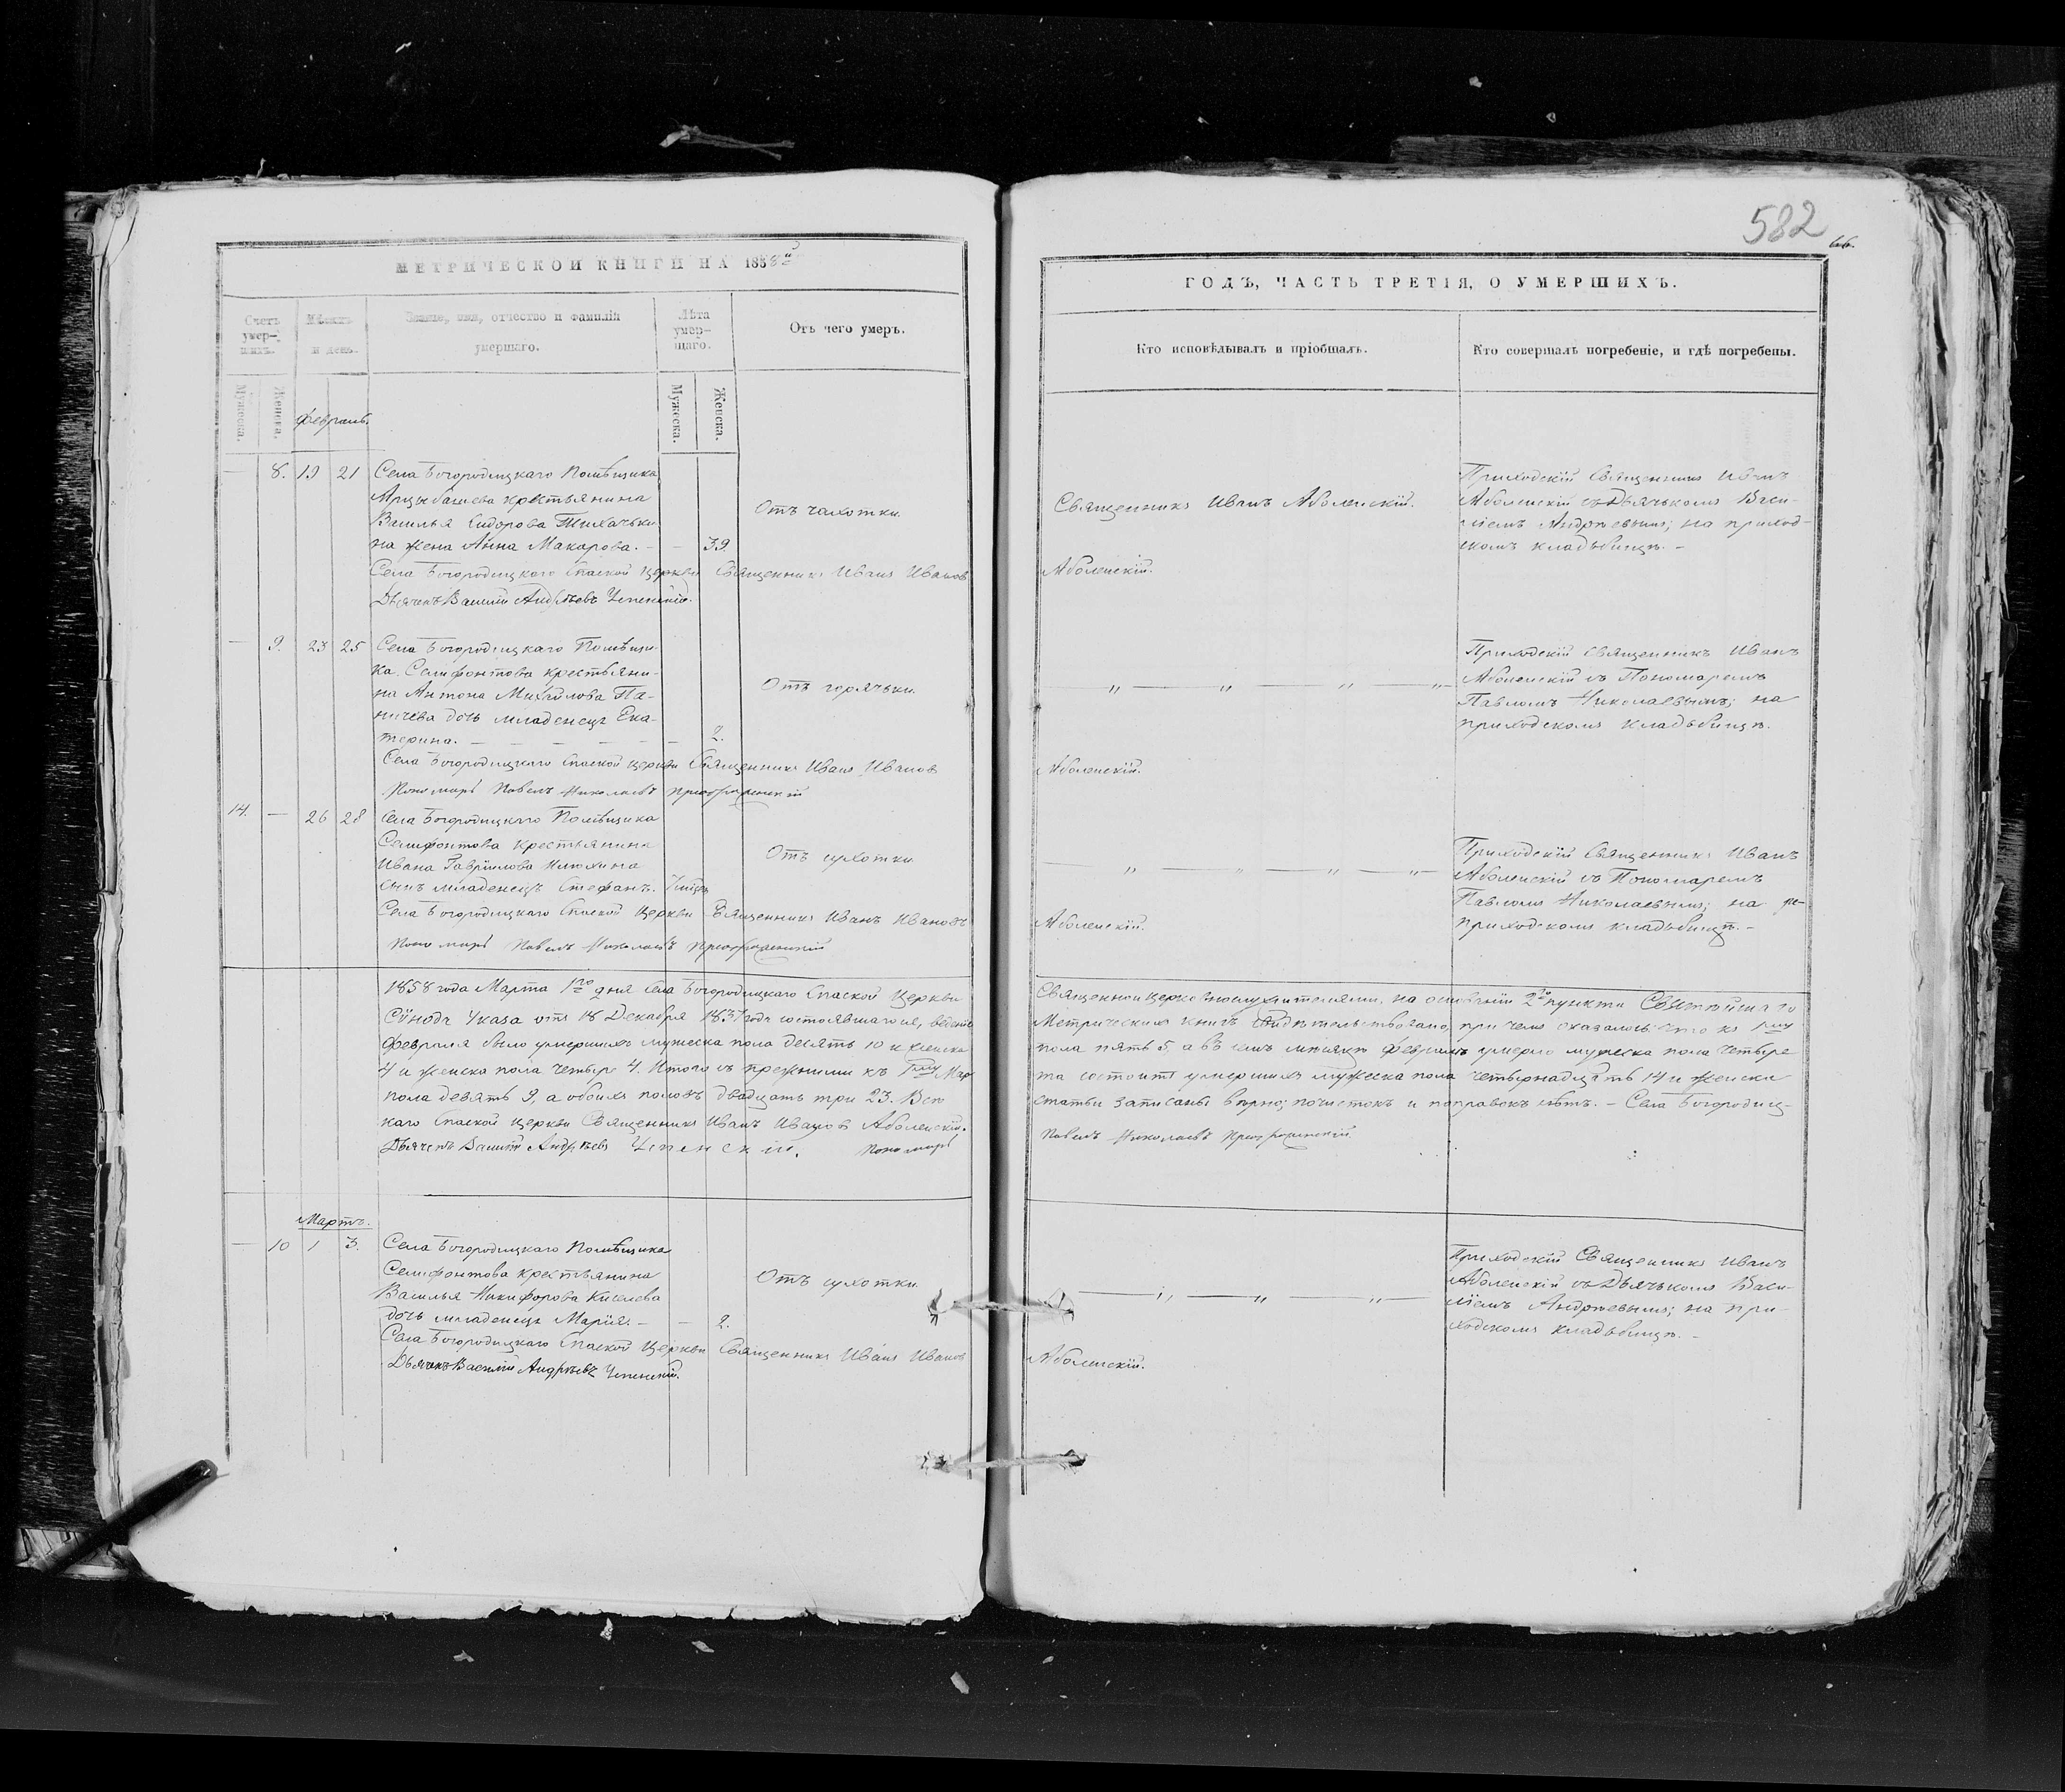 582
66.
МЕТРИЧЕСКОЙ КНИГИ НА 1858й
ГОДЪ, ЧАСТЬ ТРЕТІЯ, О УМЕРШИХЪ.
Счетъ умер-шихъ.
Мѣсяцъ и день.
Званіе, имя, отчество и фамилія умершаго.
Лѣта умер-шаго.
Отъ чего умеръ.
Кто исповѣдывалъ и пріобщалъ.
Кто совершалъ погребеніе, и гдѣ погребены.
Мужеска.
Женска.
Мужеска.
Женска.
Февраль.
— 8. 19 21 Села Богородицкаго Помѣщика
Арцыбашева крестьянина
Василья Сидорова
на жена Анна Макарова. — — 39.
Отъ чахотки
Священникъ Иванъ Аболенскій.
Приходскій Священникъ Иванъ
Аболенскій съ Дьячькомъ Васи-
ліемъ Андреевымъ; на приход-
скомъ кладьбищѣ. —
Села Богородицкаго Спаской Церкви Священникъ Иванъ Ивановъ Аболенскій.
Дьячекъ Василій Андреевъ
— 9. 23 25 Села Богородицкаго Помѣщи-
ка Селифонтова крестьяни-
на Антона Михайлова Па-
ничева дочь младенецъ Ека-
терина. — — — — — 2.
Отъ горячьки.
„ — „ — „ — „
Приходскій Священникъ Иванъ
Аболенскій съ Пономаремъ
Павломъ Николаевымъ; на
приходскомъ кладьбищѣ.
Села Богородицкаго Спаской Церкви Священникъ Иванъ Ивановъ Аболенскій.
Пономарь Павелъ Николаевъ Преображенскій
14. — 26 28 Села Богородицкаго Помѣщика
Селифонтова крестьянина
Ивана Гаврилова
сынъ младенецъ Стефанъ.
Отъ сухотки
„ — „ — „ — „
Приходскій Священникъ Иванъ
Аболенскій съ Пономаремъ
Павломъ Николаевымъ; на
приходскомъ кладьбищѣ. —
Села Богородицкаго Спаской Церкви Священникъ Иванъ Ивановъ Аболенскій.
Пономарь Павелъ Николаевъ Преображенскій
1858 года Марта 1го дня Села Богородицкаго Спаской Церкви Священноцерковнослужителями, на основаніи 2го пункта Святѣйшаго
Сѵнода Указа отъ 18 Декабря 1837 года состоявшагося, веденіе Метрическихъ книгъ свидѣтельствовано, при чемъ оказалось: что къ 1му
Февраля было умершихъ мужеска пола десять 10 и женска пола пять 5, а въ семъ мѣсяцѣ Февралѣ умерло мужеска пола четыре
4 и женска пола четыре 4. Итого съ прежними къ 1му Мар-та состоитъ умершихъ мужеска пола четырнадцать 14 и женска
пола девять 9, а обоихъ половъ двадцать три 23. Все статьи записаны вѣрно; почистокъ и поправокъ нѣтъ. — Села Богородиц-
каго Спаской Церкви Священникъ Иванъ Ивановъ Аболенскій.
Дьячекъ Василій Андреевъ Пономарь Павелъ Николаевъ Преображенскій
Мартъ.
— 10 1 3. Села Богородицкаго Помѣщика
Селифонтова крестьянина
Василья Никифорова Киселева
дочь младенецъ Марія — — 2.
Отъ сухотки.
„ — „ — „
Приходскій Священникъ Иванъ
Аболенскій съ Дьячькомъ Васи-
ліемъ Андреевымъ; на при-
ходскомъ кладьбищѣ. —
Села Богородицкаго Спаской Церкви Священникъ Иванъ Ивановъ Аболенскій.
Дьячекъ Василій Андреевъ